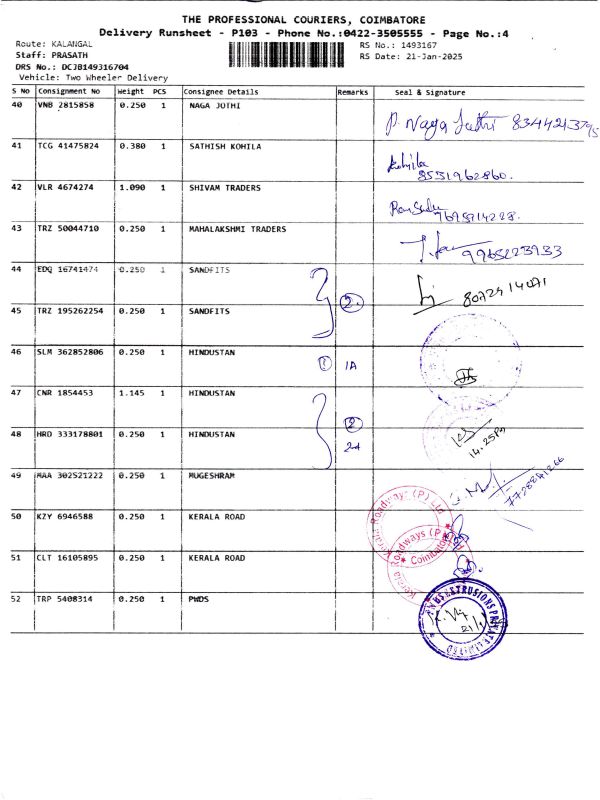 THE PROFESSIONAL COURIERS, COIMBATORE
Delivery Runsheet - P103 - Phone No.:0422-3505555 - Page No.:4
Route: KALANGAL
RS No.: 1493167
Staff: PRASATH
RS Date: 21-Jan-2025
DRS No.: DCJB149316704
Vehicle: Two Wheeler Delivery
S No Consignment No Weight PCS Consignee Details Remarks Seal & Signature
40 VNB 2815858 0.250 1 NAGA JOTHI
P. Naga Jothi
41 TCG 41475824 0.380 1 SATHISH KOHILA
8531962860.
42 VLR 4674274 1.090 1 SHIVAM TRADERS
43 TRZ 50044710 0.250 1 MAHALAKSHMI TRADERS
9965223933
44 EDQ 16741474 0.250 1 SANDFITS
2
45 TRZ 195262254 0.250 1 SANDFITS
46 SLM 362852806 0.250 1 HINDUSTAN
1 1A
47 CNR 1854453 1.145 1 HINDUSTAN
2
48 HRD 333178801 0.250 1 HINDUSTAN
14.25
49 MAA 302521222 0.250 1 MUGESHRAM
50 KZY 6946588 0.250 1 KERALA ROAD
Kerala Roadways (P) Ltd
Coimbatore
51 CLT 16105895 0.250 1 KERALA ROAD
Kerala Roadways (P)
52 TRP 5408314 0.250 1 PWDS